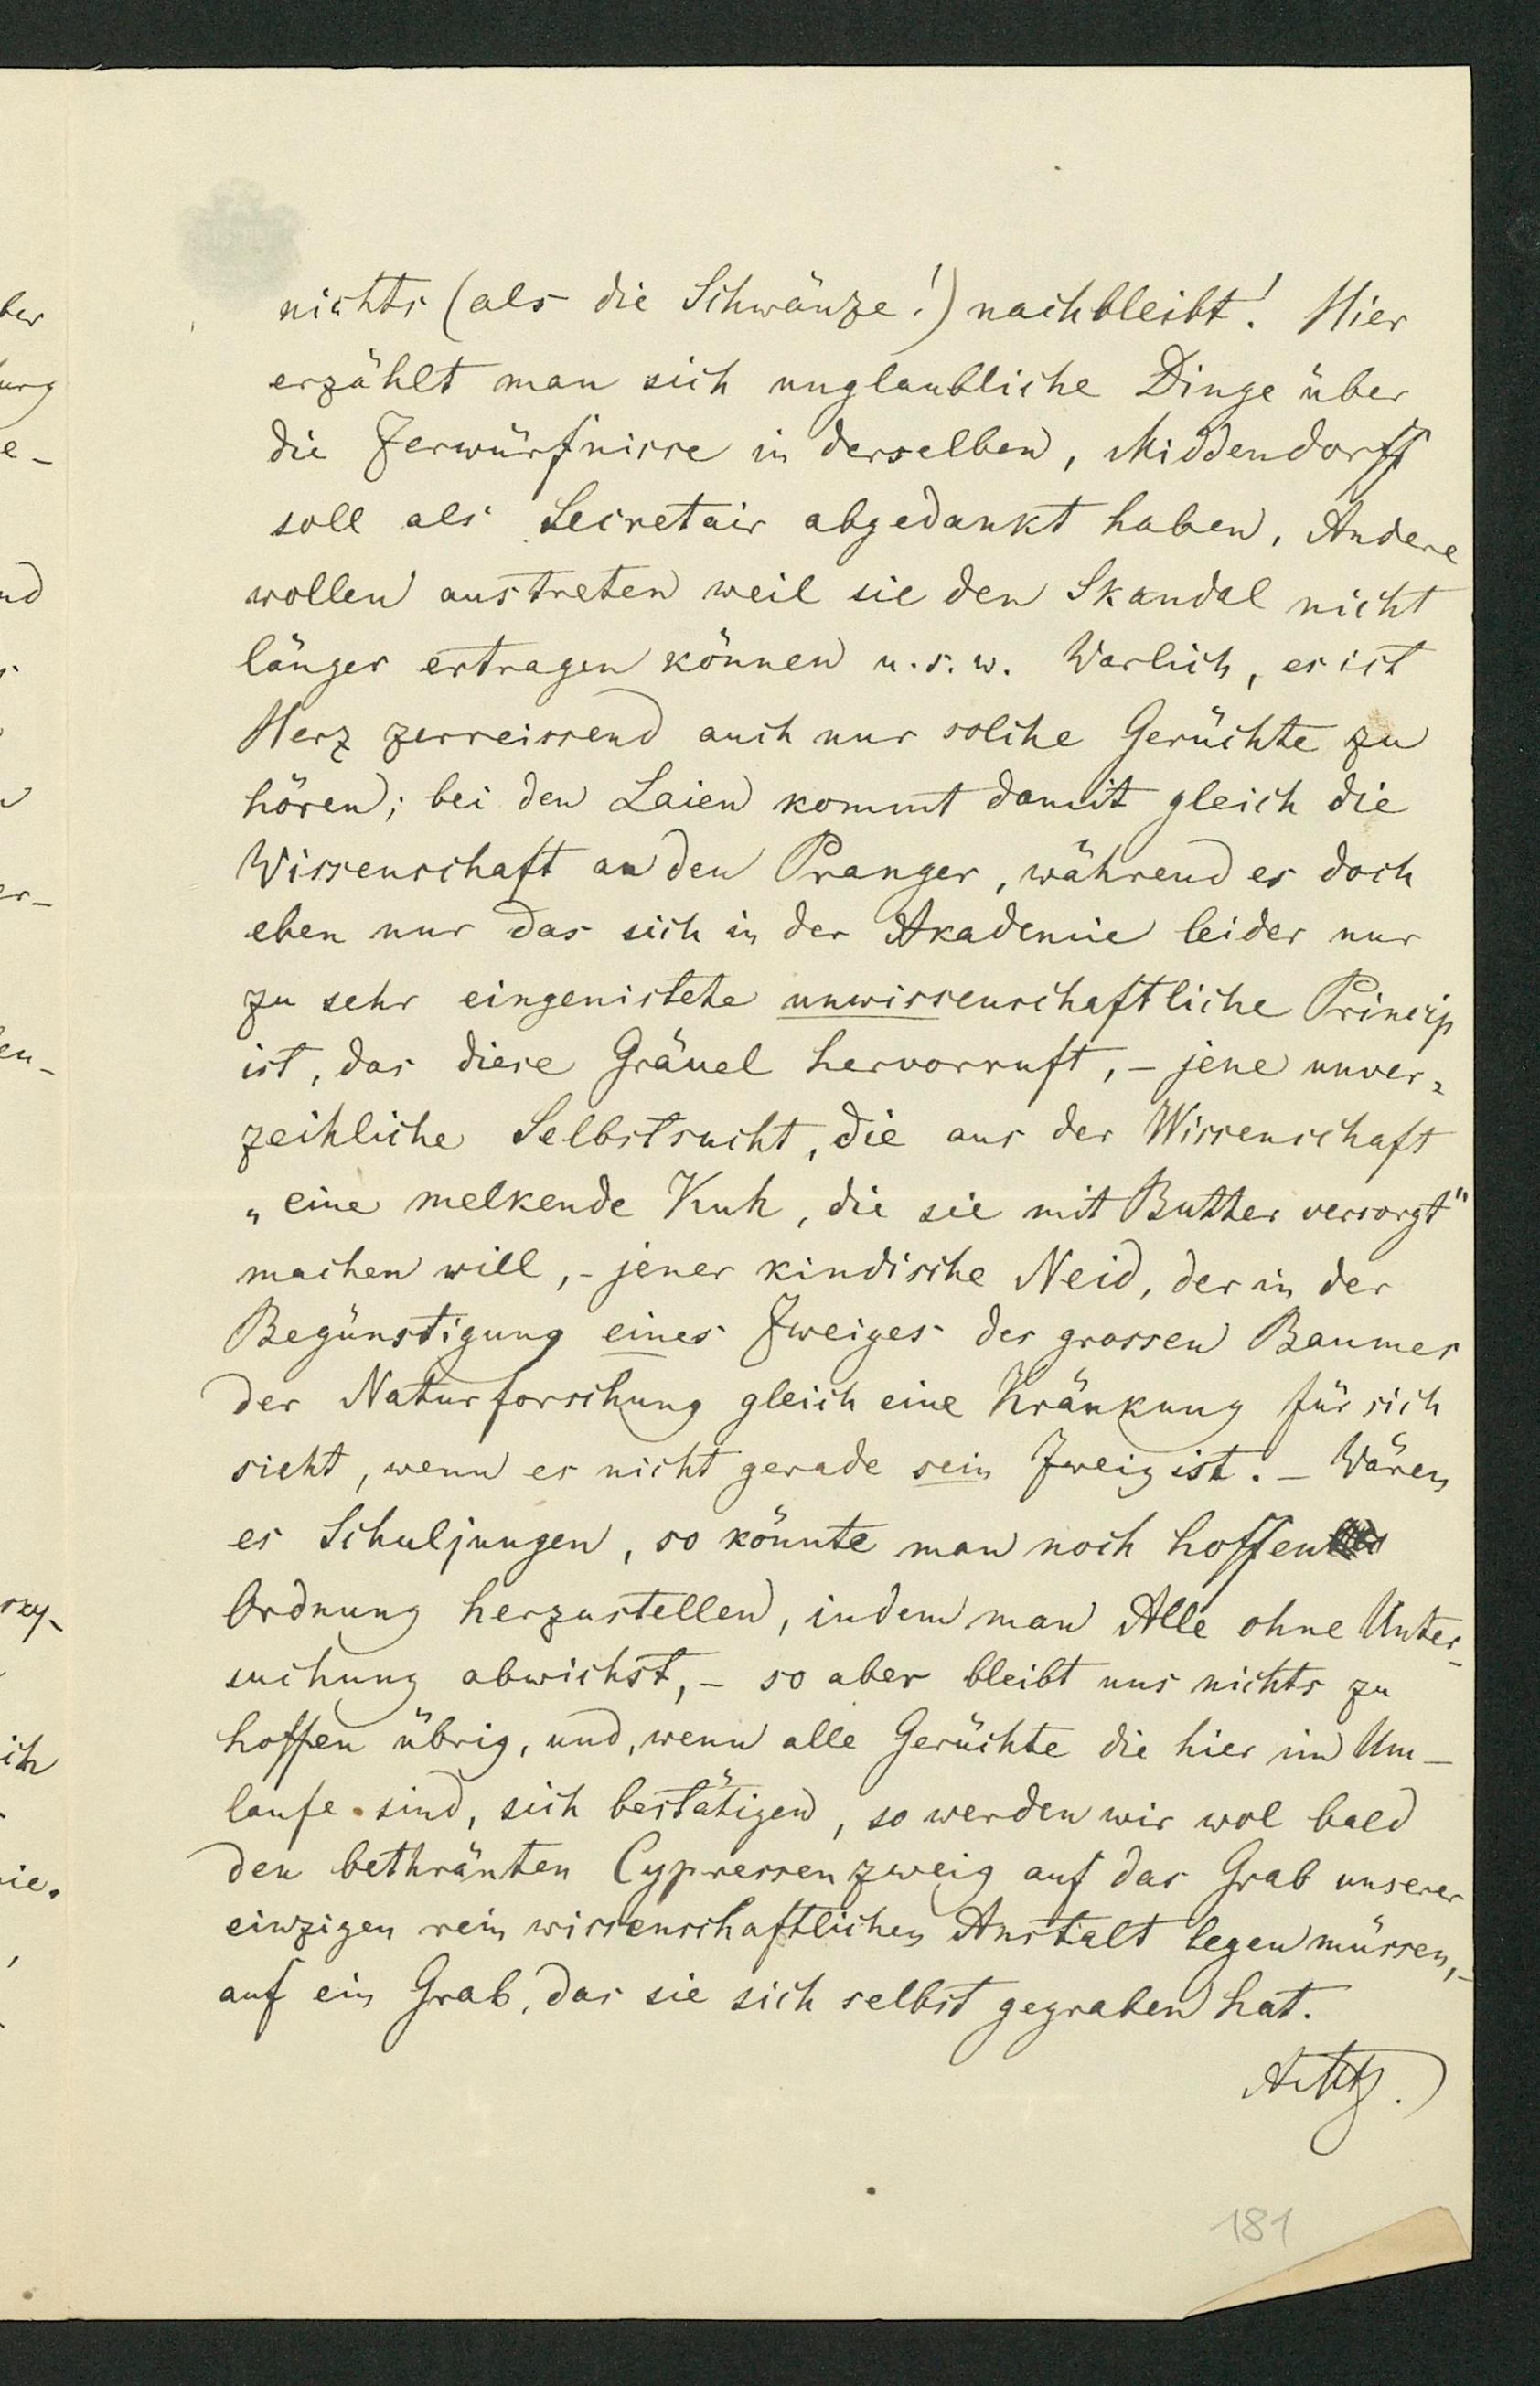 nichts (als die Schwänze!) nachbleibt! Hier
erzählt man sich unglaubliche Dinge über
die Zerwürfnisse in derselben, Middendorff
soll als Secretair abgedankt haben, Andere
wollen austreten weil sie den Skandal nicht
länger ertragen können u.s.w. Warlich, es ist
Herz zerreissend auch nur solche Gerüchte zu
hören; bei den Laien kommt damit gleich die
Wissenschaft an den Pranger, während es doch
eben nur das sich in der Akademie leider nur
zu sehr eingenistete unwissenschaftliche Princip
ist, das diese Gräuel hervorruft, – jene unver=
zeihliche Selbstsucht, die aus der Wissenschaft
„eine melkende Kuh, die sie mit Butter versorgt"
machen will, – jener kindische Neid, der in der
Begünstigung eines Zweiges des grossen Baumes
der Naturforschung gleich eine Kränkung für sich
sieht, wenn es nicht gerade sein Zweig ist. – Wären
es Schuljungen, so könnte man noch hoffen
Ordnung herzustellen, indem man Alle ohne Unter-
suchung abwichst, – so aber bleibt uns nichts zu
hoffen übrig, und, wenn alle Gerüchte die hier im Um-
laufe sind, sich bestätigen, so werden wir wol bald
den bethränten Cypressenzweig auf das Grab unserer
einzigen rein wissenschaftlichen Anstalt legen müssen, –
auf ein Grab, das sie sich selbst gegraben hat.
181